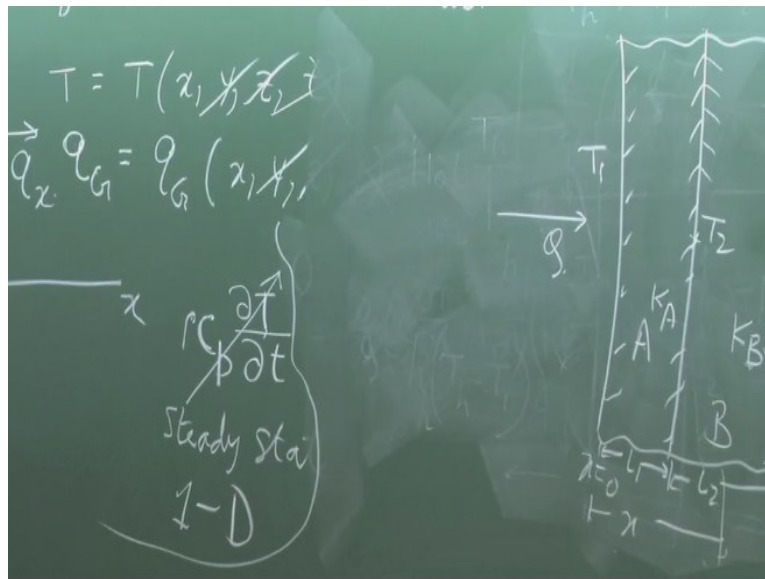 T = T(x, y, z, t)
q⃗x. qG = qG (x, y,
x
ρCp ∂T/∂t
Steady sta
1-D
T1
T2
q.
A KA
KB
B
x=0 L1 L2
x